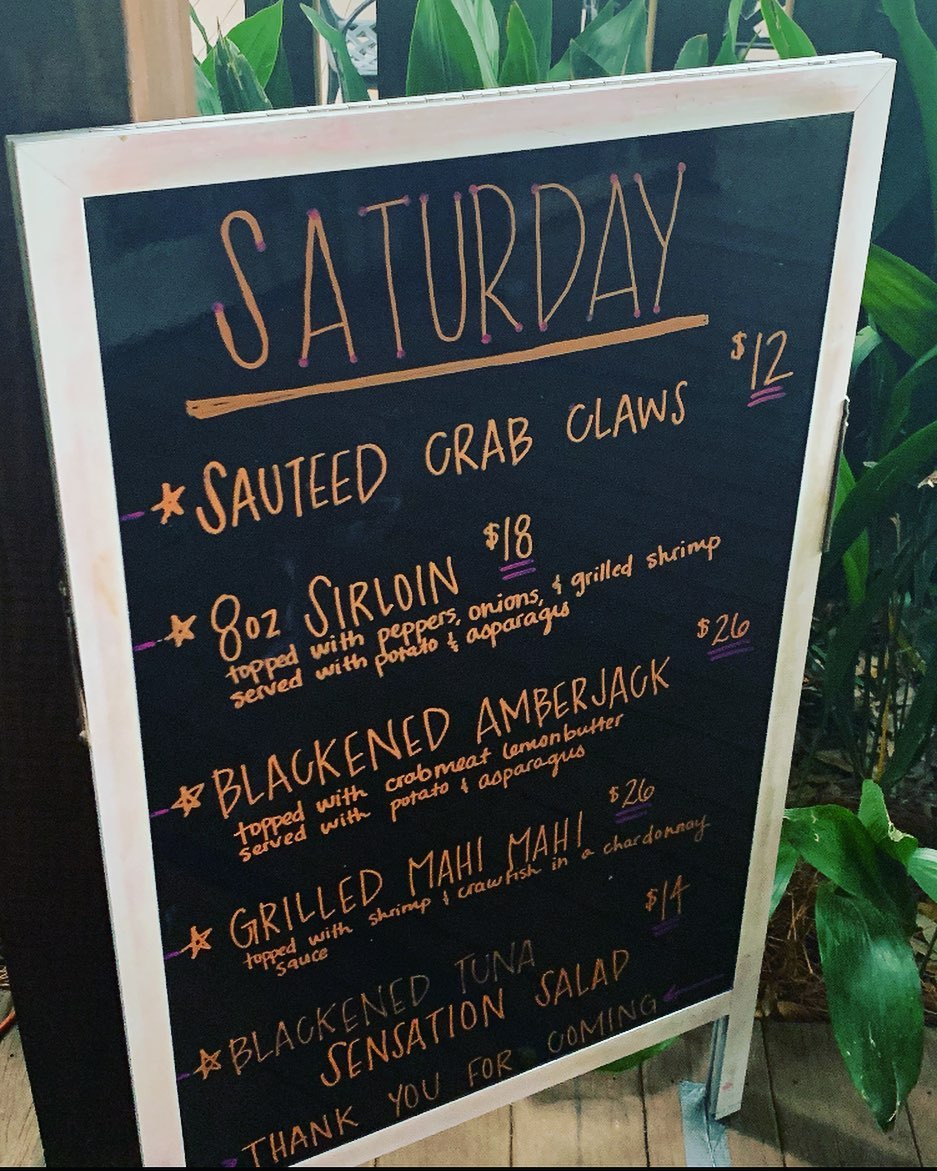 SATURDAY
SAUTEED CRAB CLAWS $12
8oz SIRLOIN $18
topped with peppers, onions, & grilled shrimp
served with potato & asparagus
BLACKENED AMBERJACK $26
topped with crabmeat lemonbutter
served with potato & asparagus
GRILLED MAHI MAHI $26
topped with shrimp & crawfish in a chardonnay
sauce
BLACKENED TUNA $14
SENSATION SALAD
THANK YOU FOR COMING